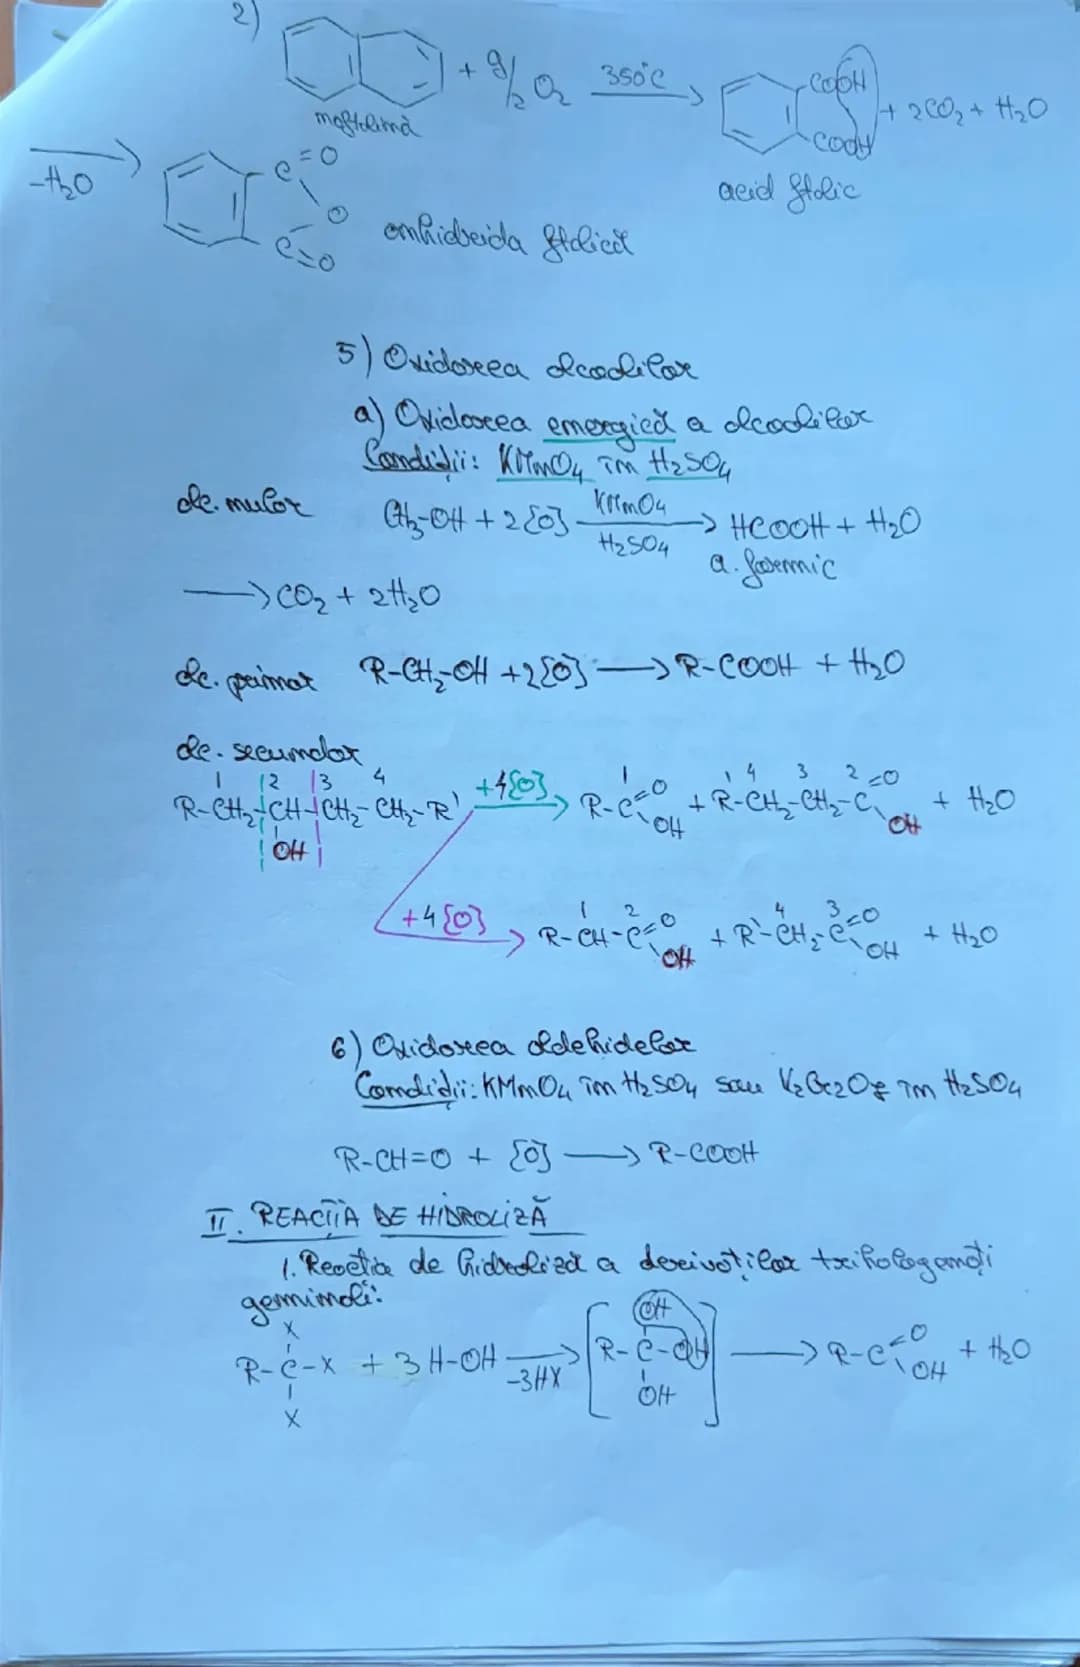 2)
+ 9/2 O2 350°C COOH COOH + 2CO2 + H2O
naftalină
acid ftalic
-H2O C=O O C=O anhidrida ftalică
5) Oxidarea alcoolilor
a) Oxidarea energică a alcoolilor
Condiții: KMnO4 în H2SO4
alc. nular CH3-OH + 2[O] KMnO4 H2SO4 → HCOOH + H2O
a. formic
→ CO2 + 2H2O
alc. primar R-CH2-OH + 2[O] → R-COOH + H2O
alc. secundar
1 2 3 4
R-CH2-CH-CH2-CH2-R' +4[O] → R-C=O OH + R'-CH2-CH2-C=O OH + H2O
OH
+4[O] → R-CH-C=O OH + R'-CH2-C=O OH + H2O
6) Oxidarea aldehidelor
Condiții: KMnO4 în H2SO4 sau K2Cr2O7 în H2SO4
R-CH=O + [O] → R-COOH
II. REACȚIA DE HIDROLIZĂ
1. Reacția de hidroliză a derivaților trihalogenați
geminali:
X OH
R-C-X + 3 H-OH → -3HX [R-C-OH] → R-C=O OH + H2O
X OH